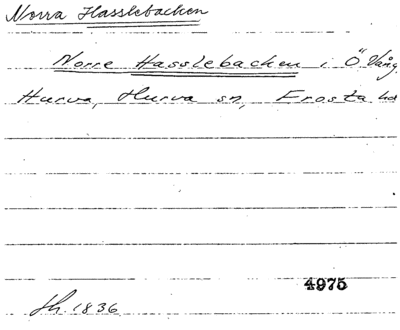 Norra Hasslebacken
Norre Hasslebacken i Ö Vång,
Hurva, Hurva sn, Frosta hd
4975
Sk. 1836